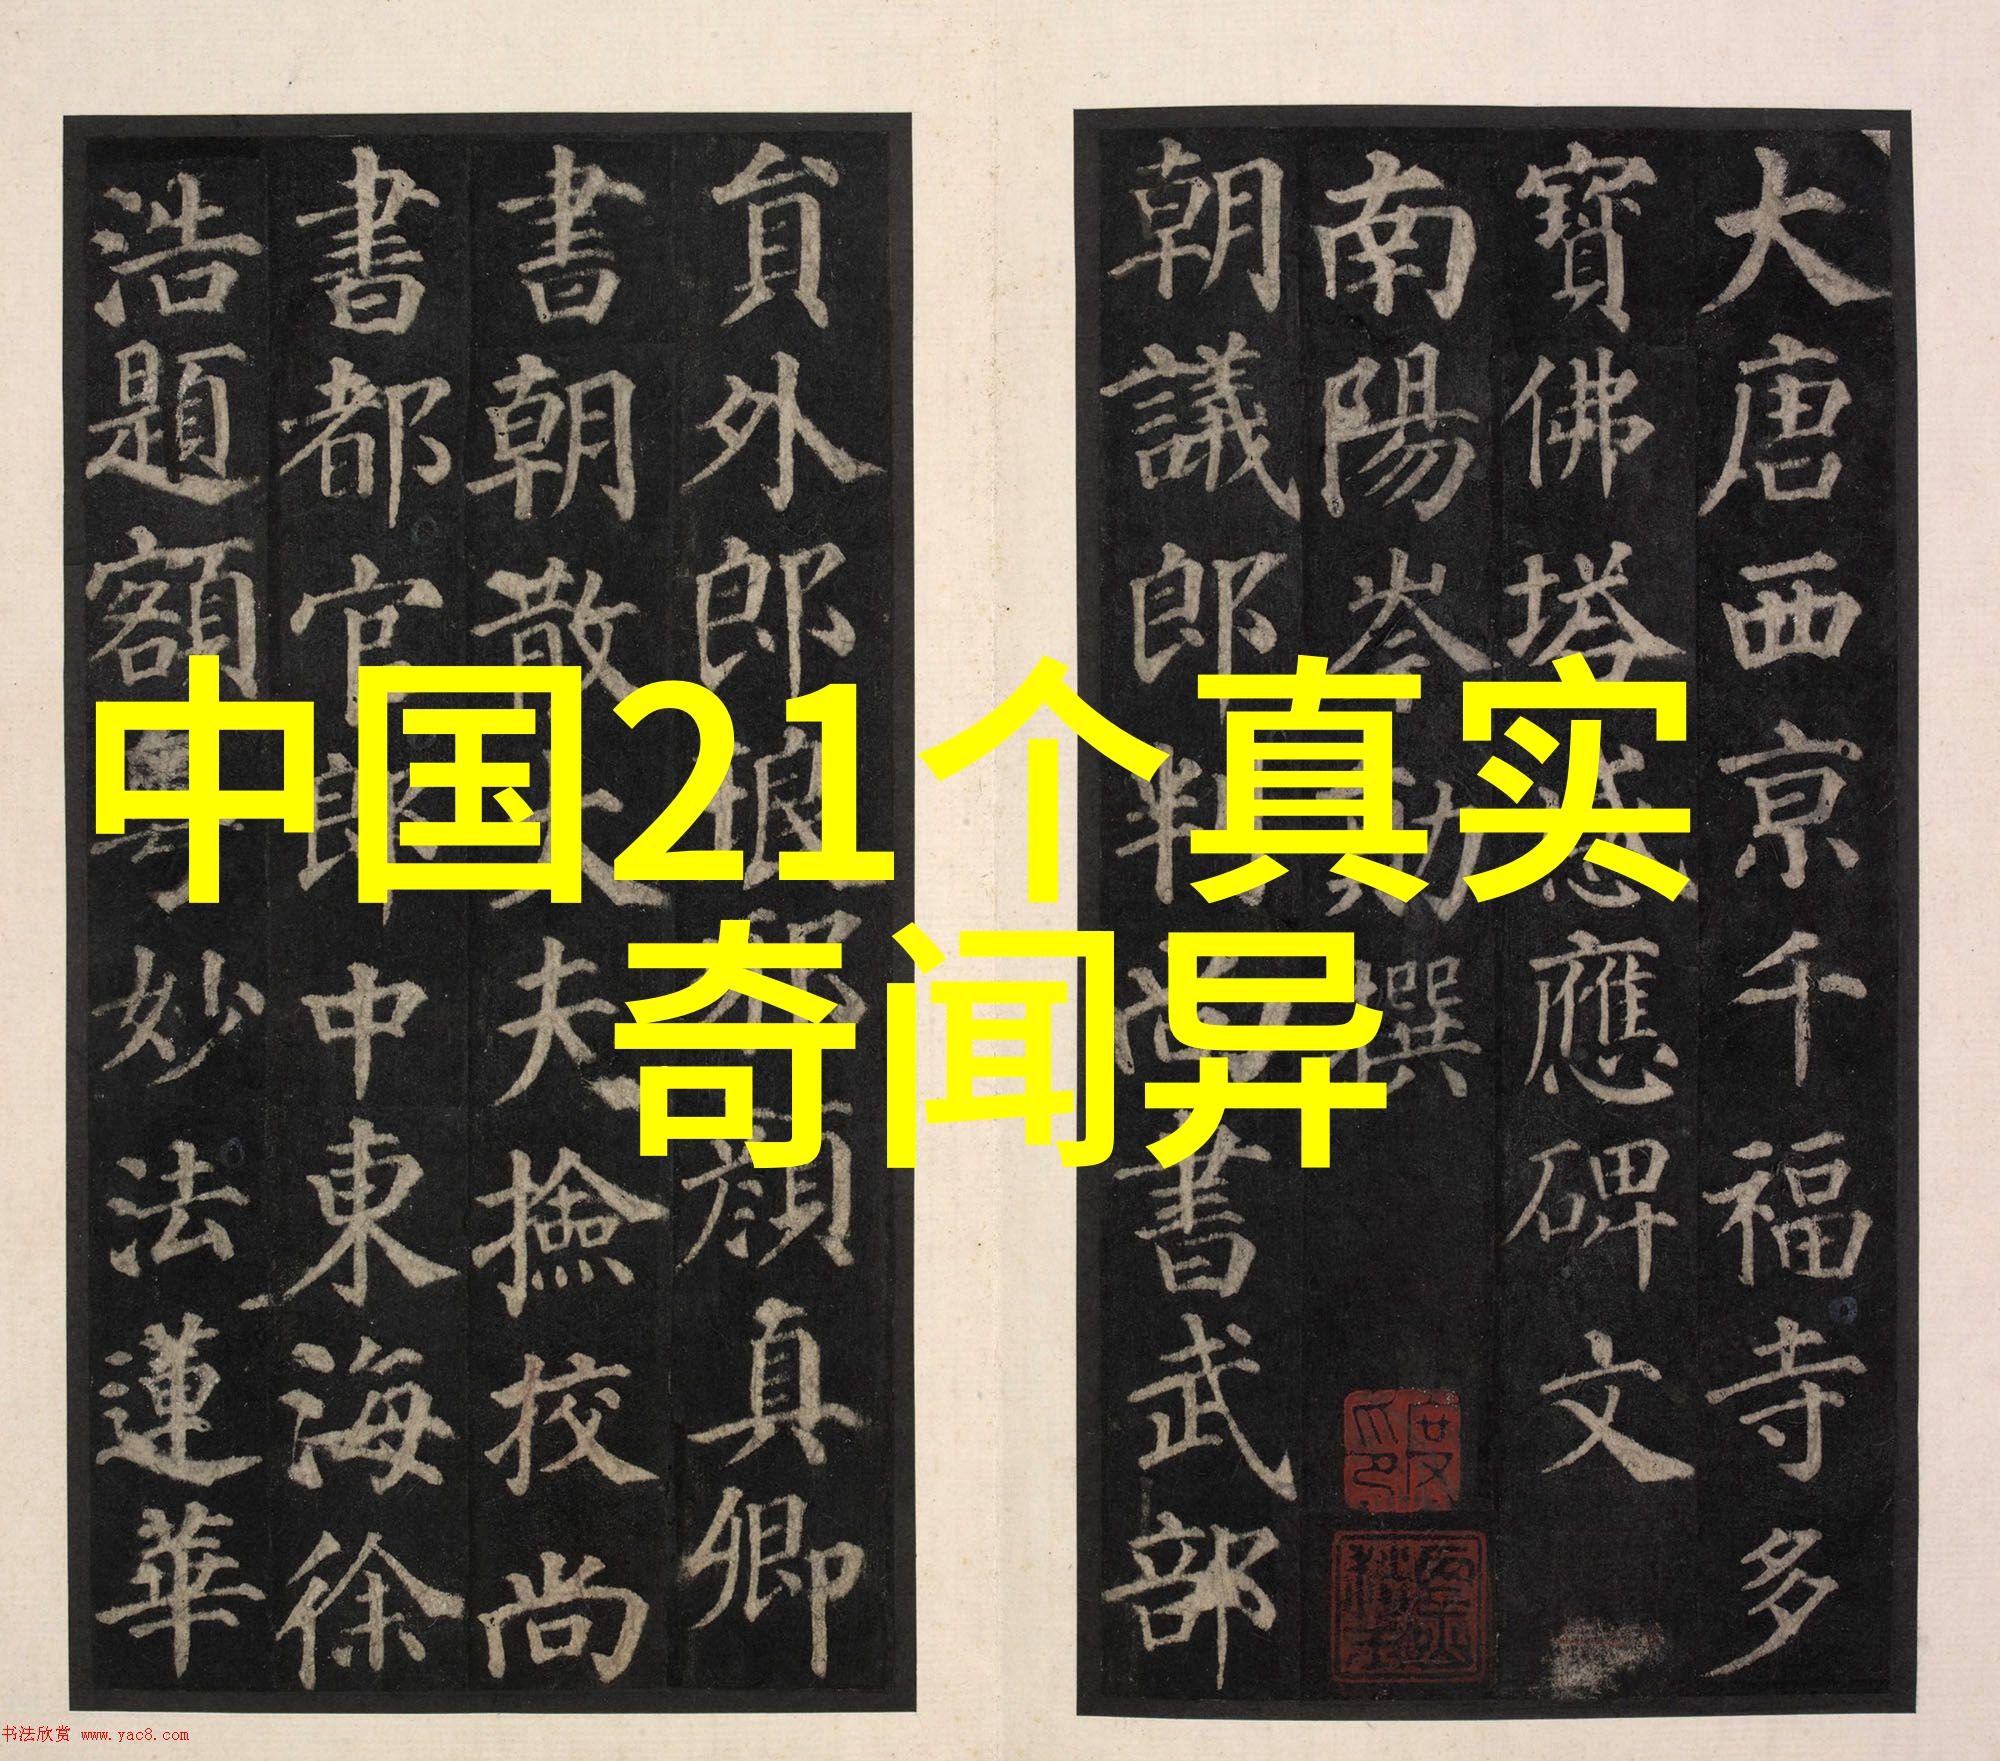 中国21个真实
奇闻异
大唐西京千福寺多
寶佛塔感應碑文
南陽岑勛撰
朝議郎判尚書武部
貟外郎琅邪顏真卿
書朝散大夫撿挍尚
書都官郎中東海徐
浩題額粵妙法蓮華
书法欣赏 www.yac8.com